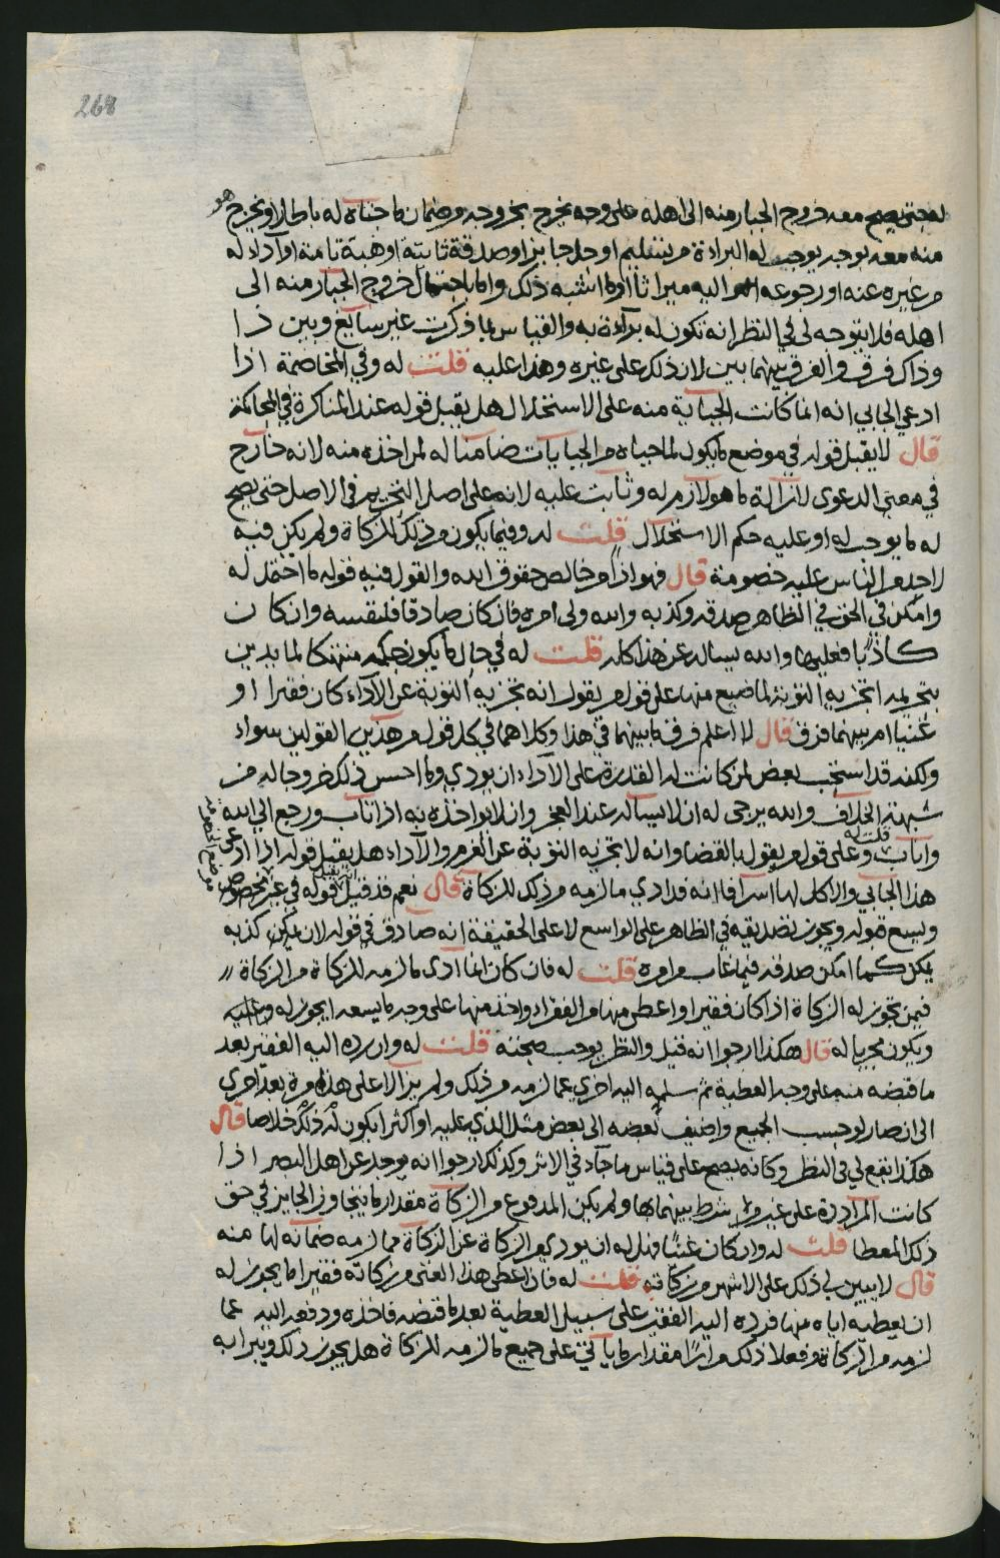 268
له حتى يصح معه خروج الجبار منه الى اهله على وجه يخرج بخروجه من ضمان ما جناه له باطلا او يخرج هو
منه معه بوجه يوجب له البراءة من تسليم او حل جايز او صدقة ثابتة او هبة تامة او آداء له
من غيره عنه او رجوعه اليه ميراثا او ما اشبه ذلك واما باحتمال خروج الجبار منه الى
اهله فلا يتوجه لي في النظر انه تكون له براءة به والقياس بما ذكرت غير سايغ وبين ذا
وذاك فرق والفرق بينهما بين لان ذلك على غيره وهذا عليه قلت له وفي المخاصمة اذا
ادعي الجابي انه انما كانت الجباية منه على الاستحلال هل يقبل قوله عند المناكرة في المحاكمة
قال لا يقبل قوله في موضع ما يكون لما جباه من الجبايات ضامنا له لمن اخذه منه لانه خارج
في معنى الدعوى لازالة ما هو لازم له وثابت عليه لانه على اصل التحريم في الاصل حتى يصح
له ما يوجب له او عليه حكم الاستحلال قلت له وفيما يكون من ذلك للزكاة ولم يكن فيه
لاحد من الناس عليه خصومة قال فهو اذا من خالص حقوق الله والقول فيه قوله ما احتمل له
وامكن في الحق في الظاهر صدقه وكذبه والله ولي امره فان كان صادقا فلنفسه وان كان
كاذبا فعليها والله يساله عن هذا كله قلت له في حال ما يكون بحكمه منتهكا لما يدين
بتحريمه اتجزيه التوبة لما ضيع منها على قول من يقول انه تجزيه التوبة عن الآداء كان فقيرا او
غنيا ام بينهما فرق قال لا اعلم فرق ما بينهما في هذا وكلاهما في كل قول من هذين القولين سواء
ولكنه قد استحب بعض لمن كانت له القدرة على الآداء ان يودي وما احسن ذلك خروجا له من
شبهة الخلاف والله يرجى له ان لا يساله عند العجز وان لا يواخذه به اذا تاب ورجع الى الله
واناب قلت له وعلى قول من يقول بالقضا وانه لا تجزيه التوبة عن الغرم والآداء هل يقبل قوله اذا ادعى
هذا الجابي والاكل لها اسرافا انه قد ادي ما لزمه من ذلك للزكاة قال نعم قد قيل ان يقبل قوله في غير مخصوص
ويسع قوله ويجوز تصديقه في الظاهر على الواسع لا على الحقيقة انه صادق في قوله لان يمكن كذبه
يمكن كما امكن صدقه فيما غاب من امره قلت له فان كان انما ادى ما لزمه للزكاة من الزكاة
فيمن تجوز له الزكاة اذا كان فقيرا واعطي منها من الفقراء واخذ منها على وجه ما يسعه ايجوز له
ويكون مجزيا له قال هكذا ارجوا انه قيل والنظر يوجب صحته قلت له وان رده اليه الفقير بعد
ما قبضه منه على وجه العطية ثم سلمه اليه اخرى عما لزمه من ذلك ولم يزالا على هذا مرة بعد اخرى
الى ان صار لو حسب الجميع واضيف بعضه الى بعض مثل الذي عليه او اكثر ايكون له ذلك خلاصا قال
هكذا يقع لي في النظر وكانه يصح على قياس ما جآء في الاثر وكذلك ارجوا انه يوجد عن اهل البصر اذا
كانت المراددة على غير شرط بينهما لها ولم يكن المدفوع من الزكاة مقدار ما يتجاوز الجايز في حق
ذلك المعطا قلت له وان كان غنيا فهل له ان يودي من الزكاة عن الزكاة مما لزمه ضمانه لها منه
قال لا يبين لي ذلك على الاشهر من زكاته قلت له فان اعطى هذا الغنى من زكاته فقيرا ما يجوز له
ان يعطيه اياه منها فرده اليه الفقير على سبيل العطية بعد ما قبضه فاخذه ودفعه اليه عما
لزمه من الزكاة وفعلا ذلك مرارا مقدار ما ياتي على جميع ما لزمه للزكاة هل يجوز ذلك ويبرا به